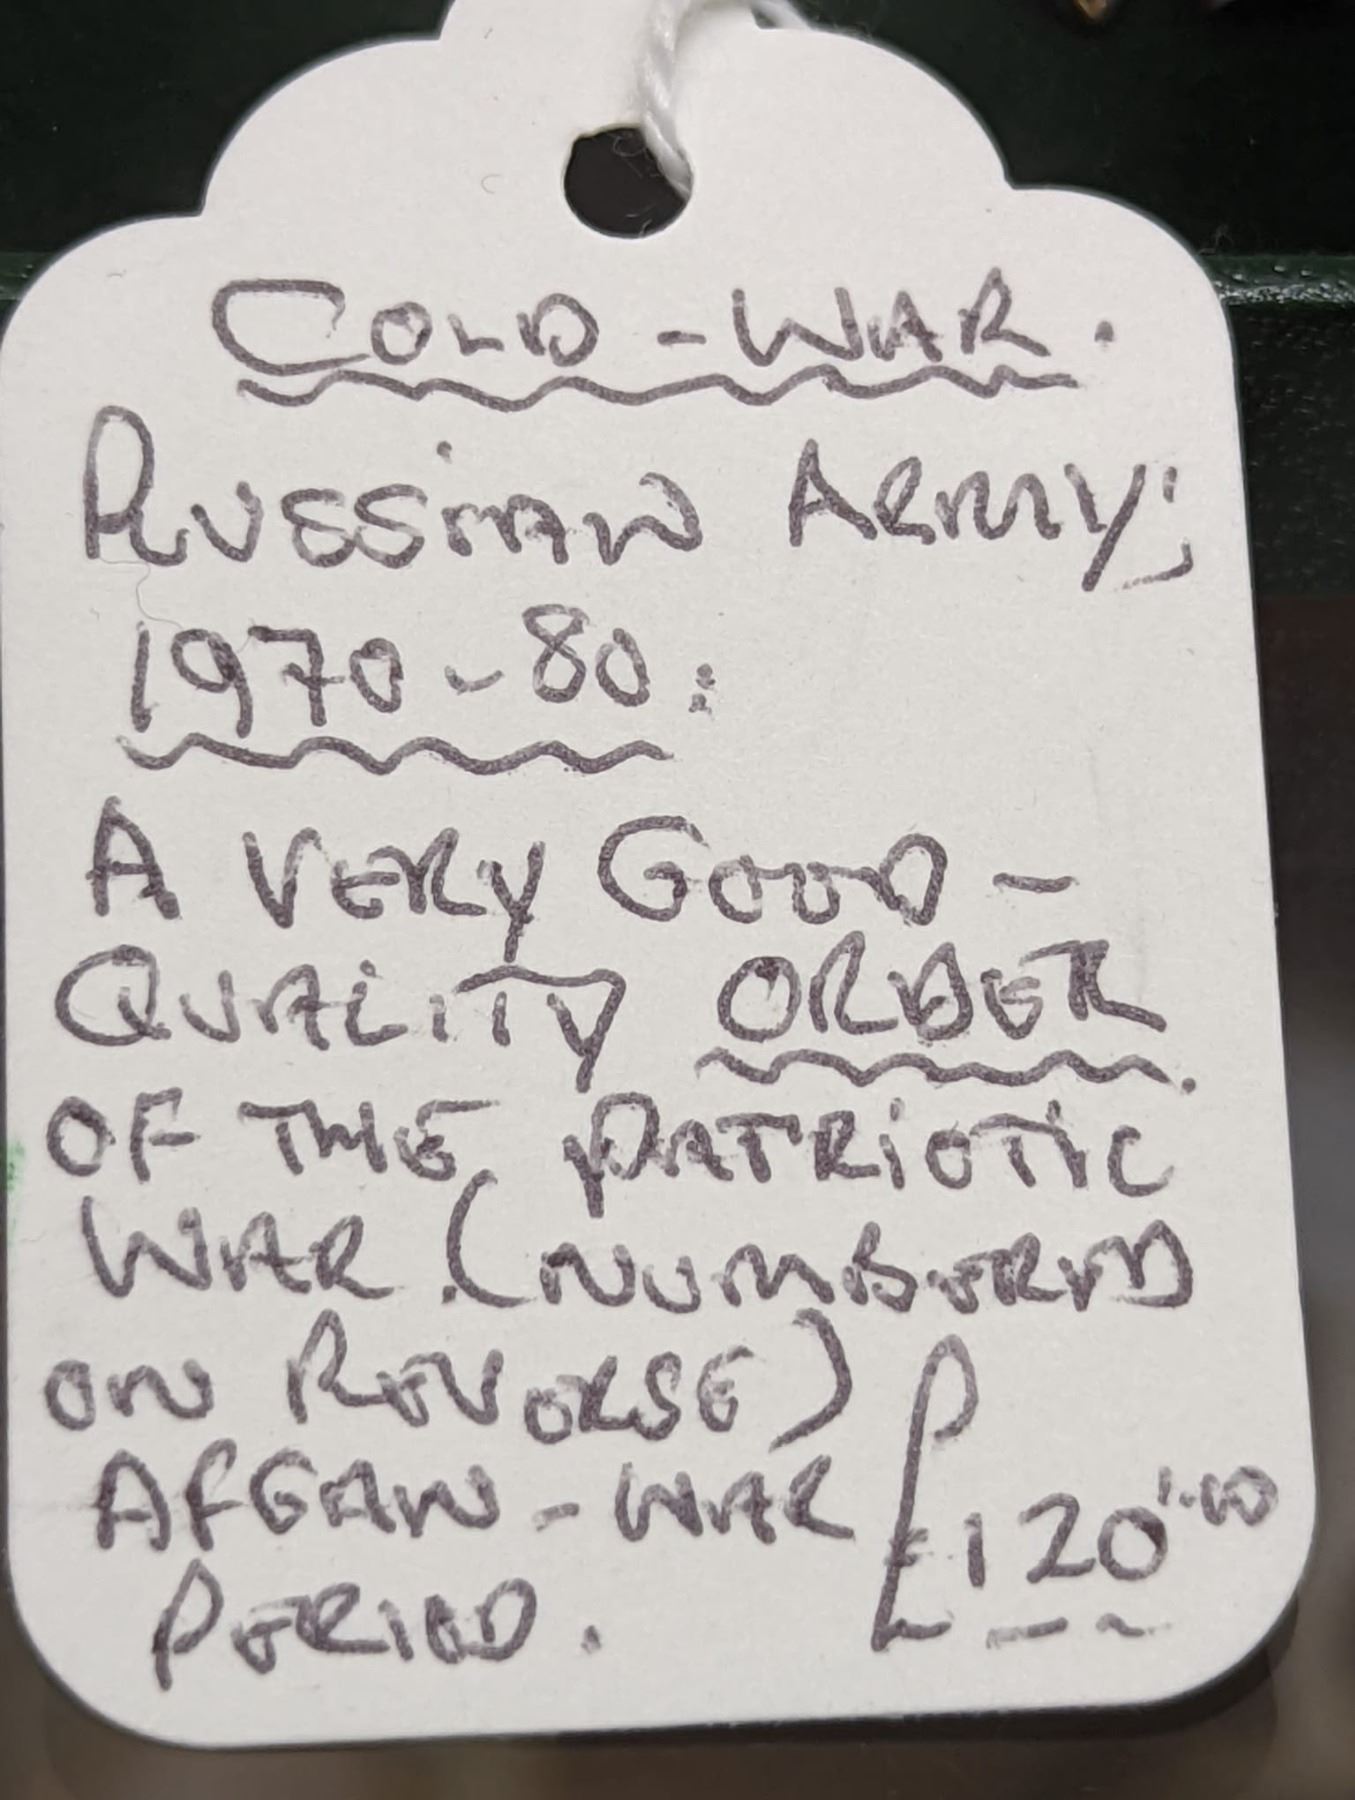 COLD - WAR.
RUSSiAN ARMY;
1970 - 80:
A VERY GOOD -
QUALiTY ORDER.
OF THE PATRiOTiC
WAR. (NUMBERED
ON REVERSE)
AFGAN - WAR £120.00
PERIOD.